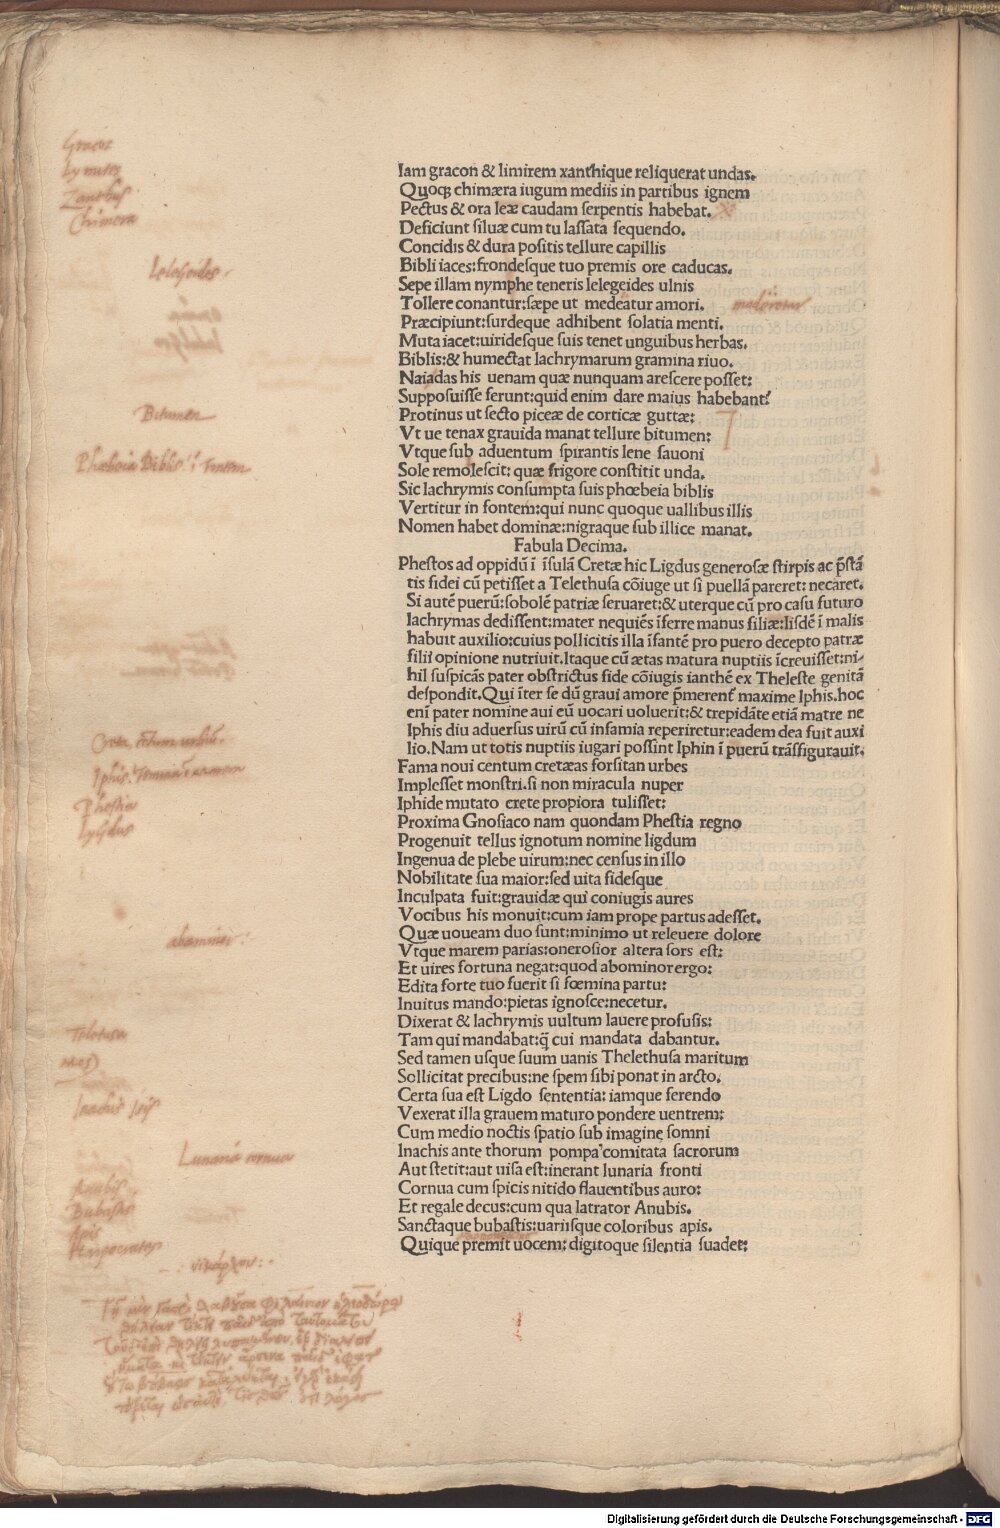 Gracos
Lymires
Zanthus
Chimera
Iam gracon & limirem xanthique reliquerat undas.
Quoqꝫ chimæra iugum mediis in partibus ignem
Pectus & ora leæ caudam ſerpentis habebat.
Deficiunt ſiluæ cum tu laſſata ſequendo.
Concidis & dura poſitis tellure capillis
Bibli iaces:frondeſque tuo premis ore caducas.
Lelegeides
Sepe illam nymphe teneris lelegeides ulnis
Tollere conantur:ſæpe ut medeatur amori.
Præcipiunt:ſurdeque adhibent ſolatia menti.
Muta iacet:uirideſque ſuis tenet unguibus herbas.
Biblis:& humectat lachrymarum gramina riuo.
Naiadas his uenam quæ nunquam areſcere poſſet:
Suppoſuiſſe ferunt:quid enim dare maius habebant?
Protinus ut ſecto piceæ de corticæ guttæ:
Bitumen
Vt ue tenax grauida manat tellure bitumen:
Vtque ſub aduentum ſpirantis lene fauoni
Phœbeia Biblis ī Fontem
Sole remoleſcit: quæ frigore conſtitit unda.
Sic lachrymis conſumpta ſuis phœbeia biblis
Vertitur in fontem:qui nunc quoque uallibus illis
Nomen habet dominæ:nigraque ſub illice manat.
Fabula Decima.
Pheſtos ad oppidū ī īſulā Cretæ hic Ligdus generoſæ ſtirpis ac p̄ſtā
tis fidei cū petiſſet a Telethuſa cōiuge ut ſi puellā pareret: necaret.
Si autē puerū:ſobolē patriæ ſeruaret:& uterque cū pro caſu futuro
lachrymas dediſſent:mater nequiēs īferre manus filiæ:Iiſdē ī malis
habuit auxilio:cuius pollicitis illa īfantē pro puero decepto patræ
filii opinione nutriuit.Itaque cū ætas matura nuptiis īcreuiſſet:ni-
hil ſuſpicās pater obſtrictus fide cōiugis ianthē ex Theleſte genitā
deſpondit.Qui īter ſe dū graui amore p̄merent̄ maxime Iphis.hoc
enī pater nomine aui eū uocari uoluerit:& trepidāte etiā matre ne
Iphis diu aduerſus uirū cū infamia reperiretur:eadem dea fuit auxi
lio.Nam ut totis nuptiis iugari poſſint Iphin ī puerū trāſfigurauit.
Fama noui centum cretæas forſitan urbes
Impleſſet monſtri.ſi non miracula nuper
Iphide mutato crete propiora tuliſſet:
Phestia
Lygdus
Proxima Gnoſiaco nam quondam Pheſtia regno
Progenuit tellus ignotum nomine ligdum
Ingenua de plebe uirum:nec cenſus in illo
Nobilitate ſua maior:ſed uita fideſque
Inculpata fuit:grauidæ qui coniugis aures
Vocibus his monuit:cum iam prope partus adeſſet.
Quæ uoueam duo ſunt:minimo ut releuere dolore
Vtque marem parias:oneroſior altera ſors eſt:
abominor:
Et uires fortuna negat:quod abominor ergo:
Edita forte tuo fuerit ſi fœmina partu:
Inuitus mando:pietas ignoſce:necetur.
Dixerat & lachrymis uultum lauere profuſis:
Tam qui mandabat:q̄ cui mandata dabantur.
Sed tamen uſque ſuum uanis Thelethuſa maritum
Sollicitat precibus:ne ſpem ſibi ponat in arcto.
Certa ſua eſt Ligdo ſententia: iamque ferendo
Vexerat illa grauem maturo pondere uentrem:
Cum medio noctis ſpatio ſub imagine ſomni
Inachis ante thorum pompa comitata ſacrorum
Lunaria cornua
Aut ſtetit:aut uiſa eſt:inerant lunaria fronti
Cornua cum ſpicis nitido flauentibus auro:
Anubis
Bubastis
Apis
Harpocrates
Et regale decus:cum qua latrator Anubis.
Sanctaque bubaſtis:uariiſque coloribus apis.
Quique premit uocem: digitoque ſilentia ſuadet:
Digitalisierung gefördert durch die Deutsche Forschungsgemeinschaft - DFG